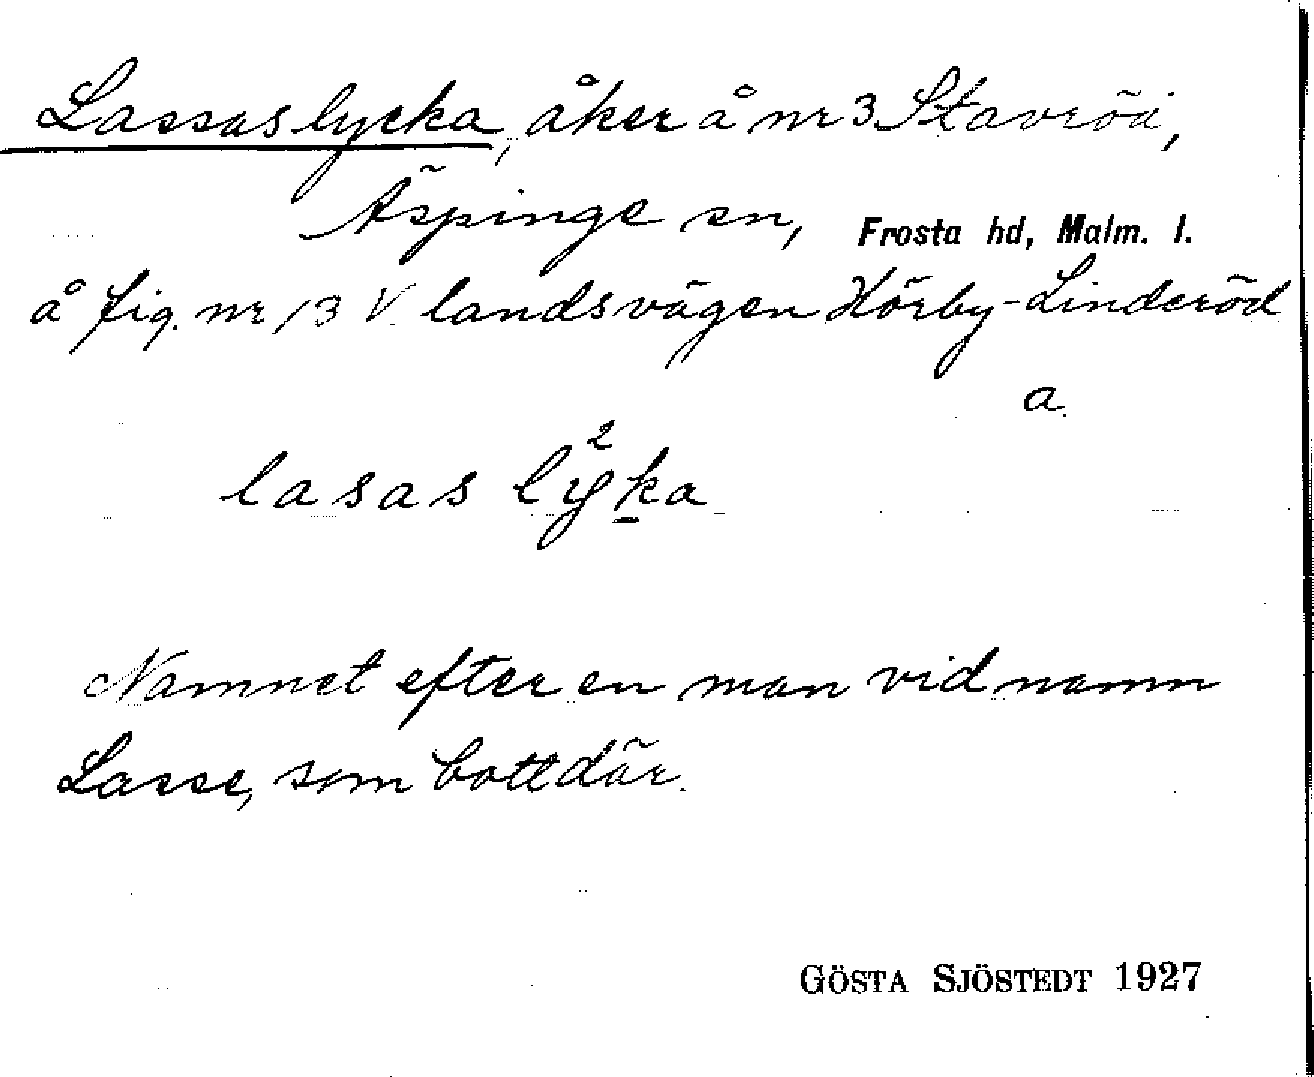 Lassas lycka, åker å nr 3 Stavröd,
Äspinge sn, Frosta hd, Malm. l.
å fig. nr 13 V. landsvägen Hörby-Linderöd
a.
lasas ly²ka
Namnet efter en man vid namn
Lasse, som bott där.
GÖSTA SJÖSTEDT 1927